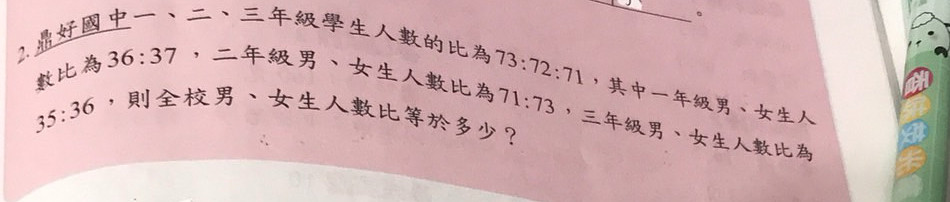 。
2. 鼎好國中一、二、三年級學生人數的比為73:72:71，其中一年級男、女生人
數比為36:37，二年級男、女生人數比為71:73，三年級男、女生人數比為
35:36，則全校男、女生人數比等於多少？